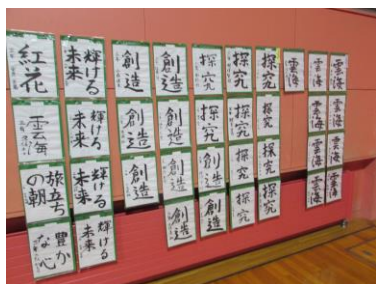 紅花
雲海
旅立ち
の朝
豊か
な心
輝ける
未来
輝ける
未来
輝ける
未来
輝ける
未来
創造
創造
創造
創造
創造
創造
創造
探究
探究
創造
創造
探究
探究
探究
探究
探究
探究
探究
探究
雲海
雲海
雲海
雲海
雲海
雲海
雲海
雲海
雲海